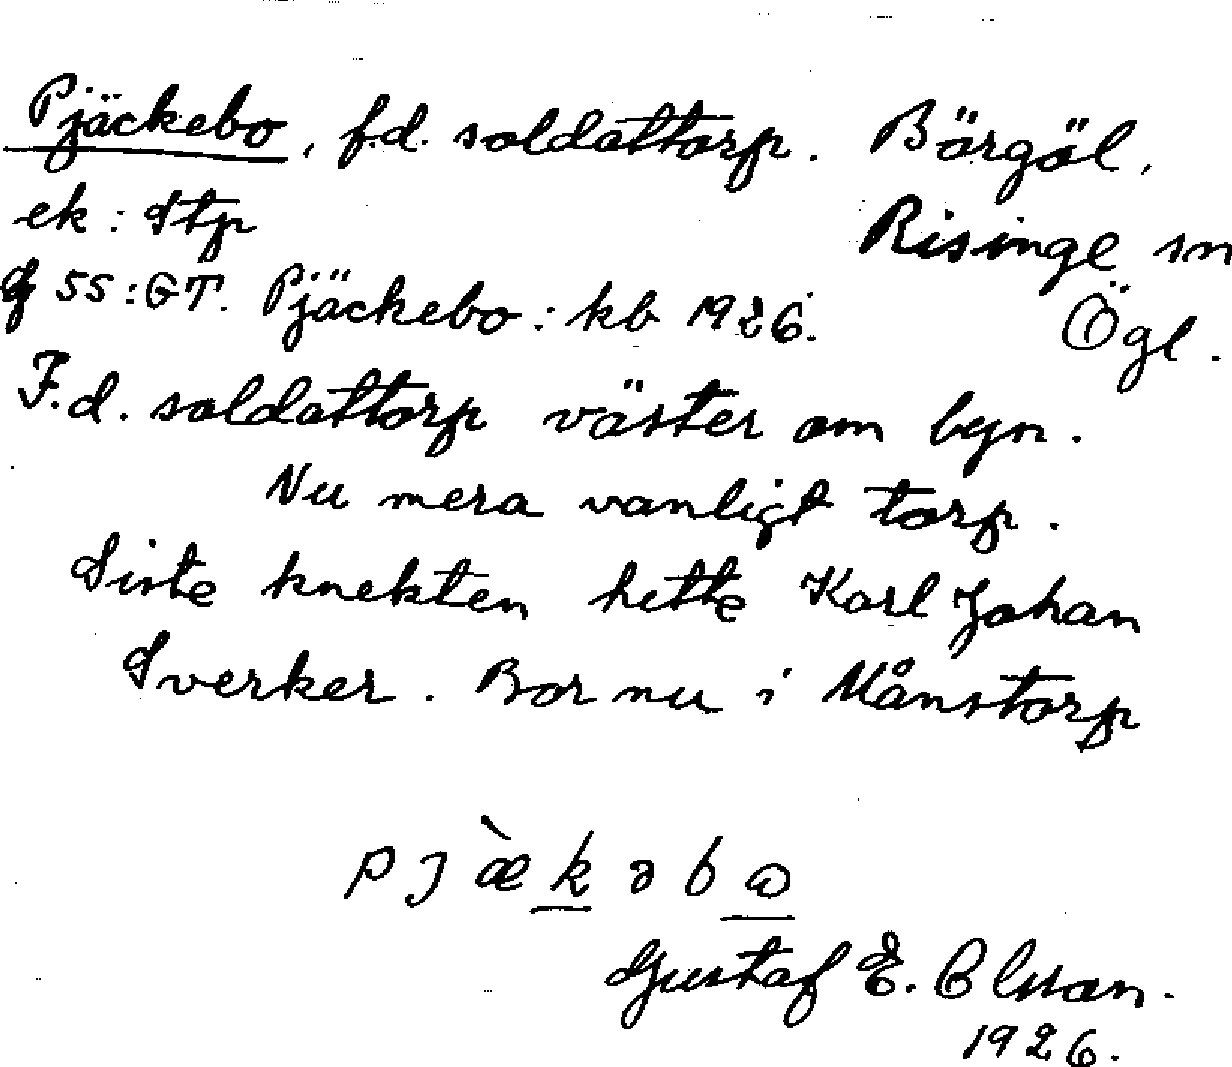 Pjäckebo, f.d. soldattorp. Börgöl,
ek: Stp Risinge sn
55:GT. Pjäckebo: kb 1926. Ögl.
F.d. soldattorp väster om byn.
Nu mera vanligt torp.
Siste knekten hette Karl Johan
Sverker. Bor nu i Månstorp
p j æ̀ k ə b ɷ
Gustaf E. Olsson.
1926.